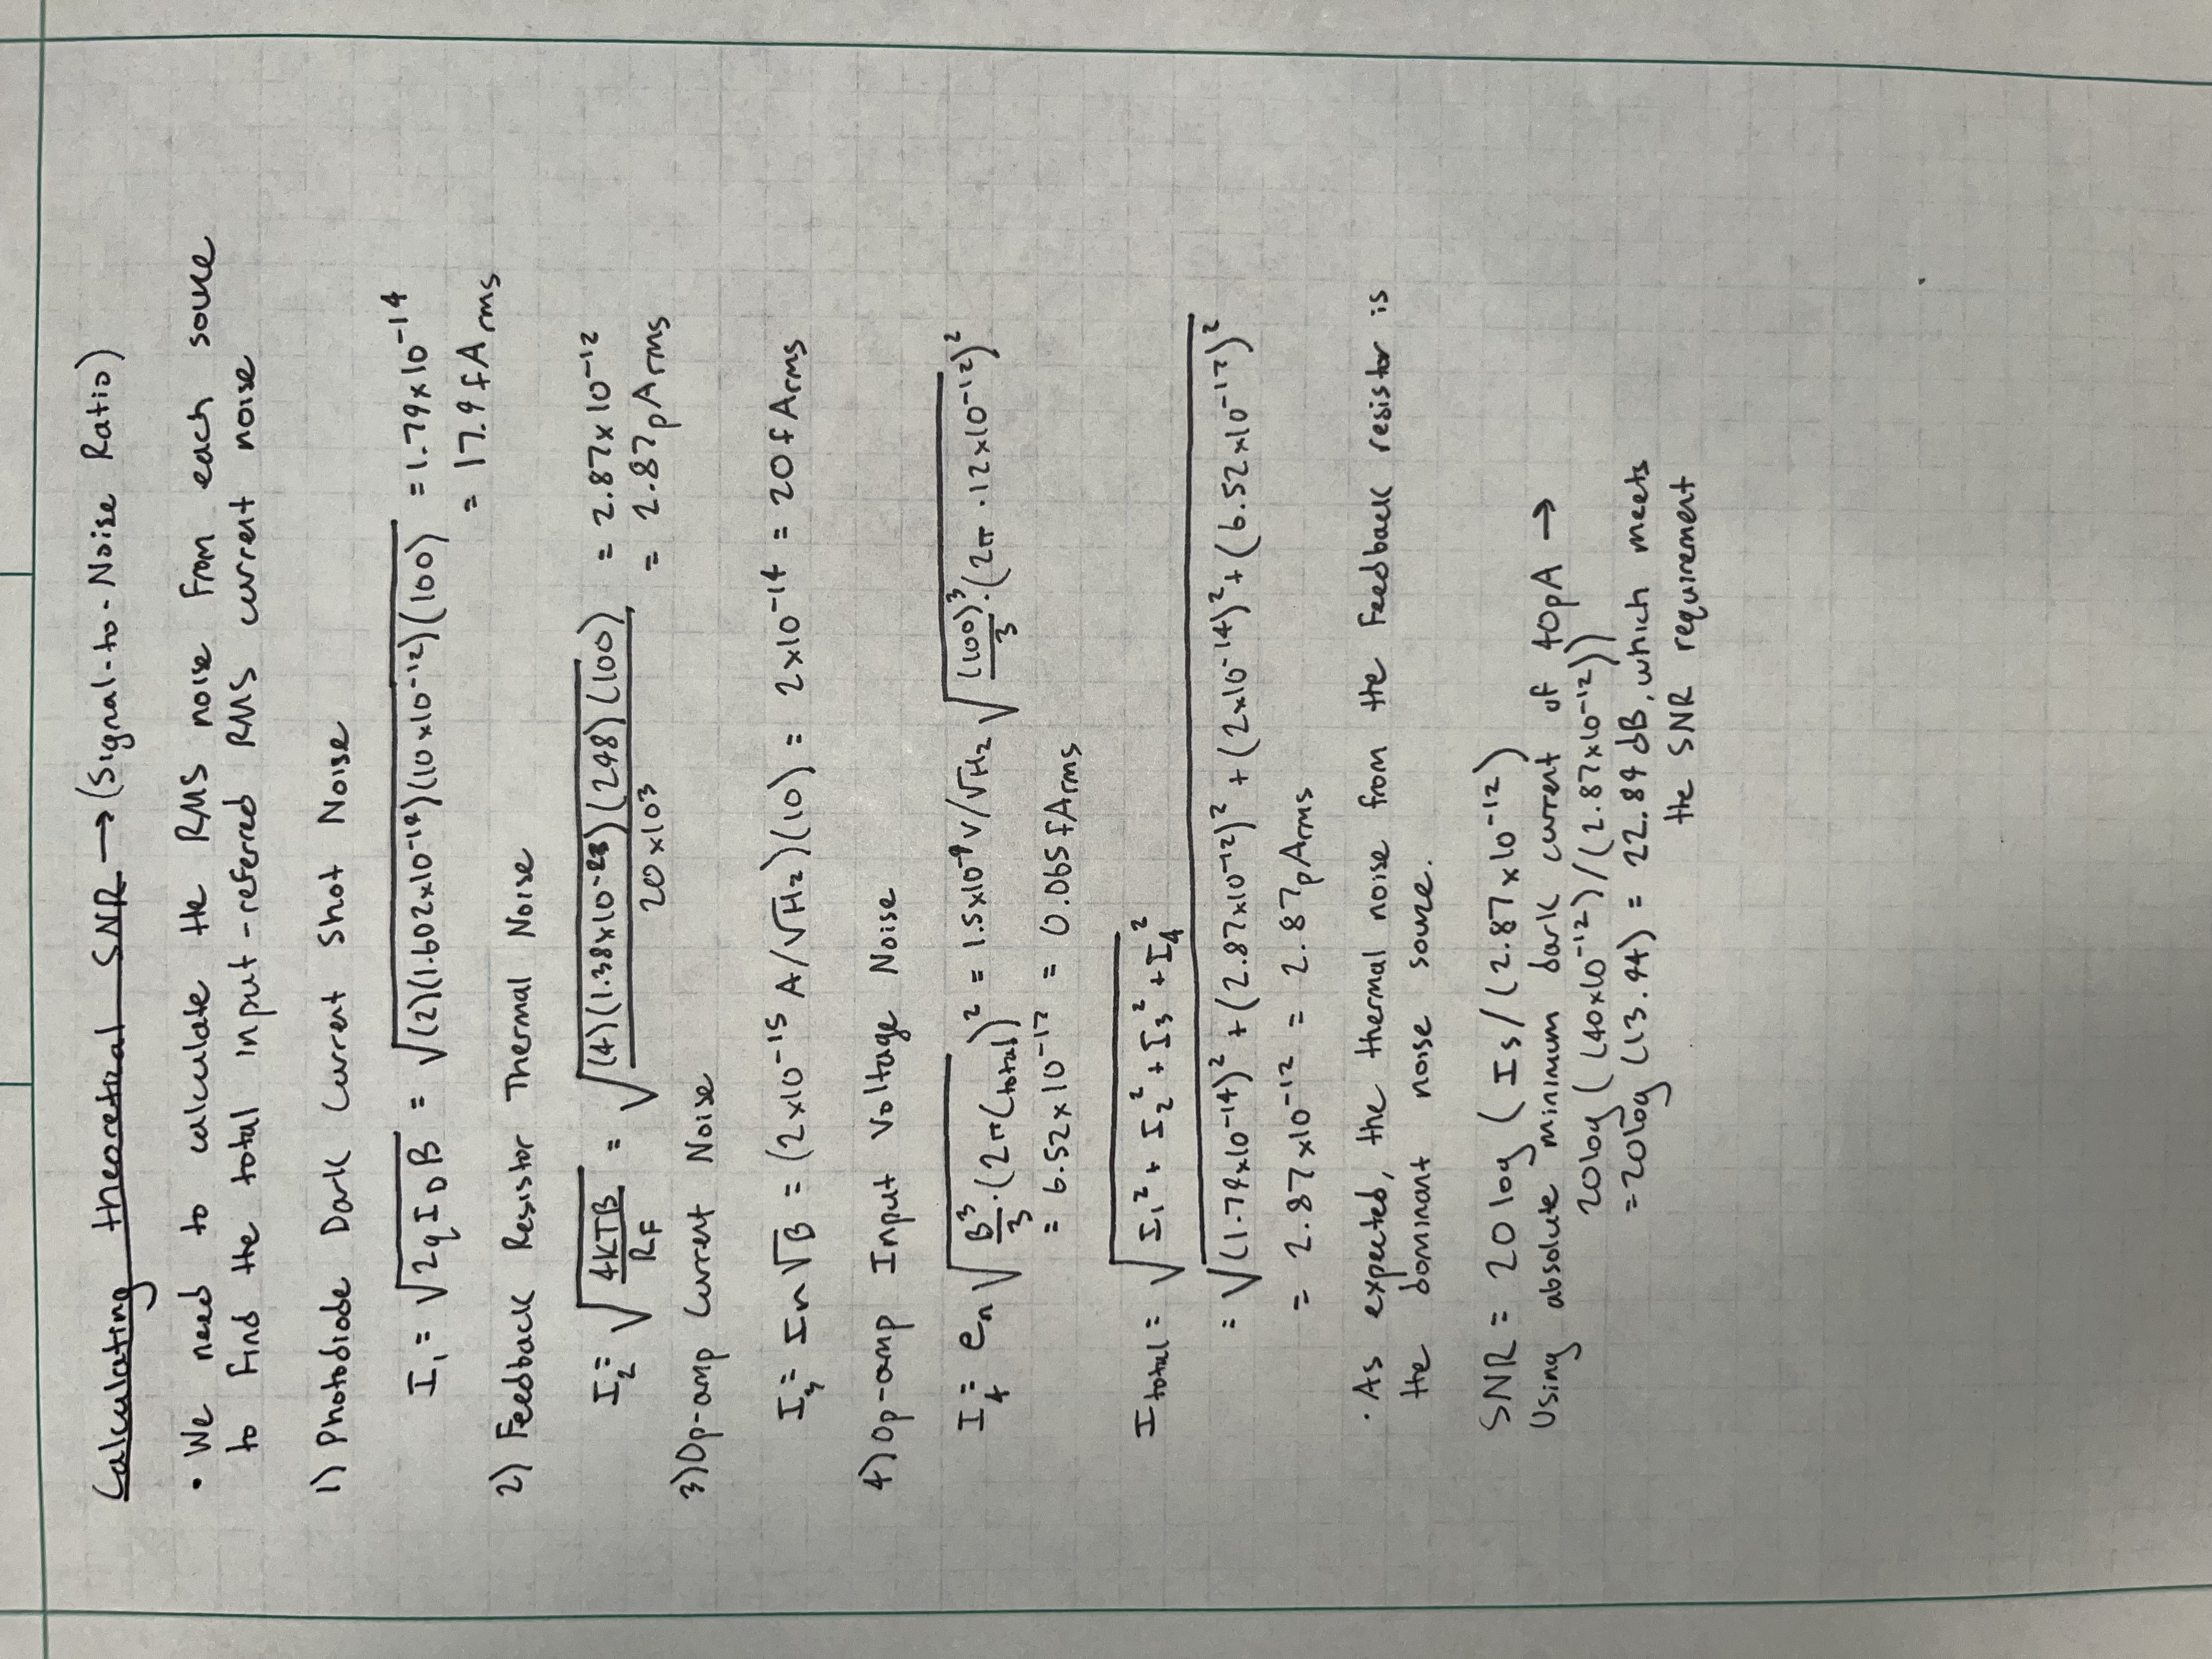 Calculating theoretical SNR → (Signal-to-Noise Ratio)
• We need to calculate the RMS noise from each source
to find the total input-referred RMS current noise
1) Photodiode Dark Current Shot Noise
I₁ = √(2qI_DB) = √((2)(1.602x10⁻¹⁹)(10x10⁻¹²)(100)) = 1.79x10⁻¹⁴
= 17.9 fArms
2) Feedback Resistor Thermal Noise
I₂ = √(4KTB/R_F) = √((4)(1.38x10⁻²³)(298)(100)/20x10³) = 2.87x10⁻¹²
= 2.87pArms
3) Op-amp Current Noise
I₃ = In√B = (2x10⁻¹⁵ A/√Hz)(10) = 2x10⁻¹⁴ = 20fArms
4) Op-amp Input Voltage Noise
I₄ = eₙ√(B³/3·(2πCtotal)²) = 1.5x10⁻⁹V/√Hz √((100)³/3·(2π·12x10⁻¹²)²)
= 6.52x10⁻¹⁷ = 0.065fArms
Itotal = √(I₁² + I₂² + I₃² + I₄²)
= √((1.79x10⁻¹⁴)² + (2.87x10⁻¹²)² + (2x10⁻¹⁴)² + (6.52x10⁻¹⁷)²)
= 2.87x10⁻¹² = 2.87pArms
• As expected, the thermal noise from the feedback resistor is
the dominant noise source.
SNR = 20log(Is/(2.87x10⁻¹²)
Using absolute minimum dark current of 40pA →
20log((40x10⁻¹²)/(2.87x10⁻¹²))
=20log(13.94) = 22.89 dB, which meets
the SNR requirement